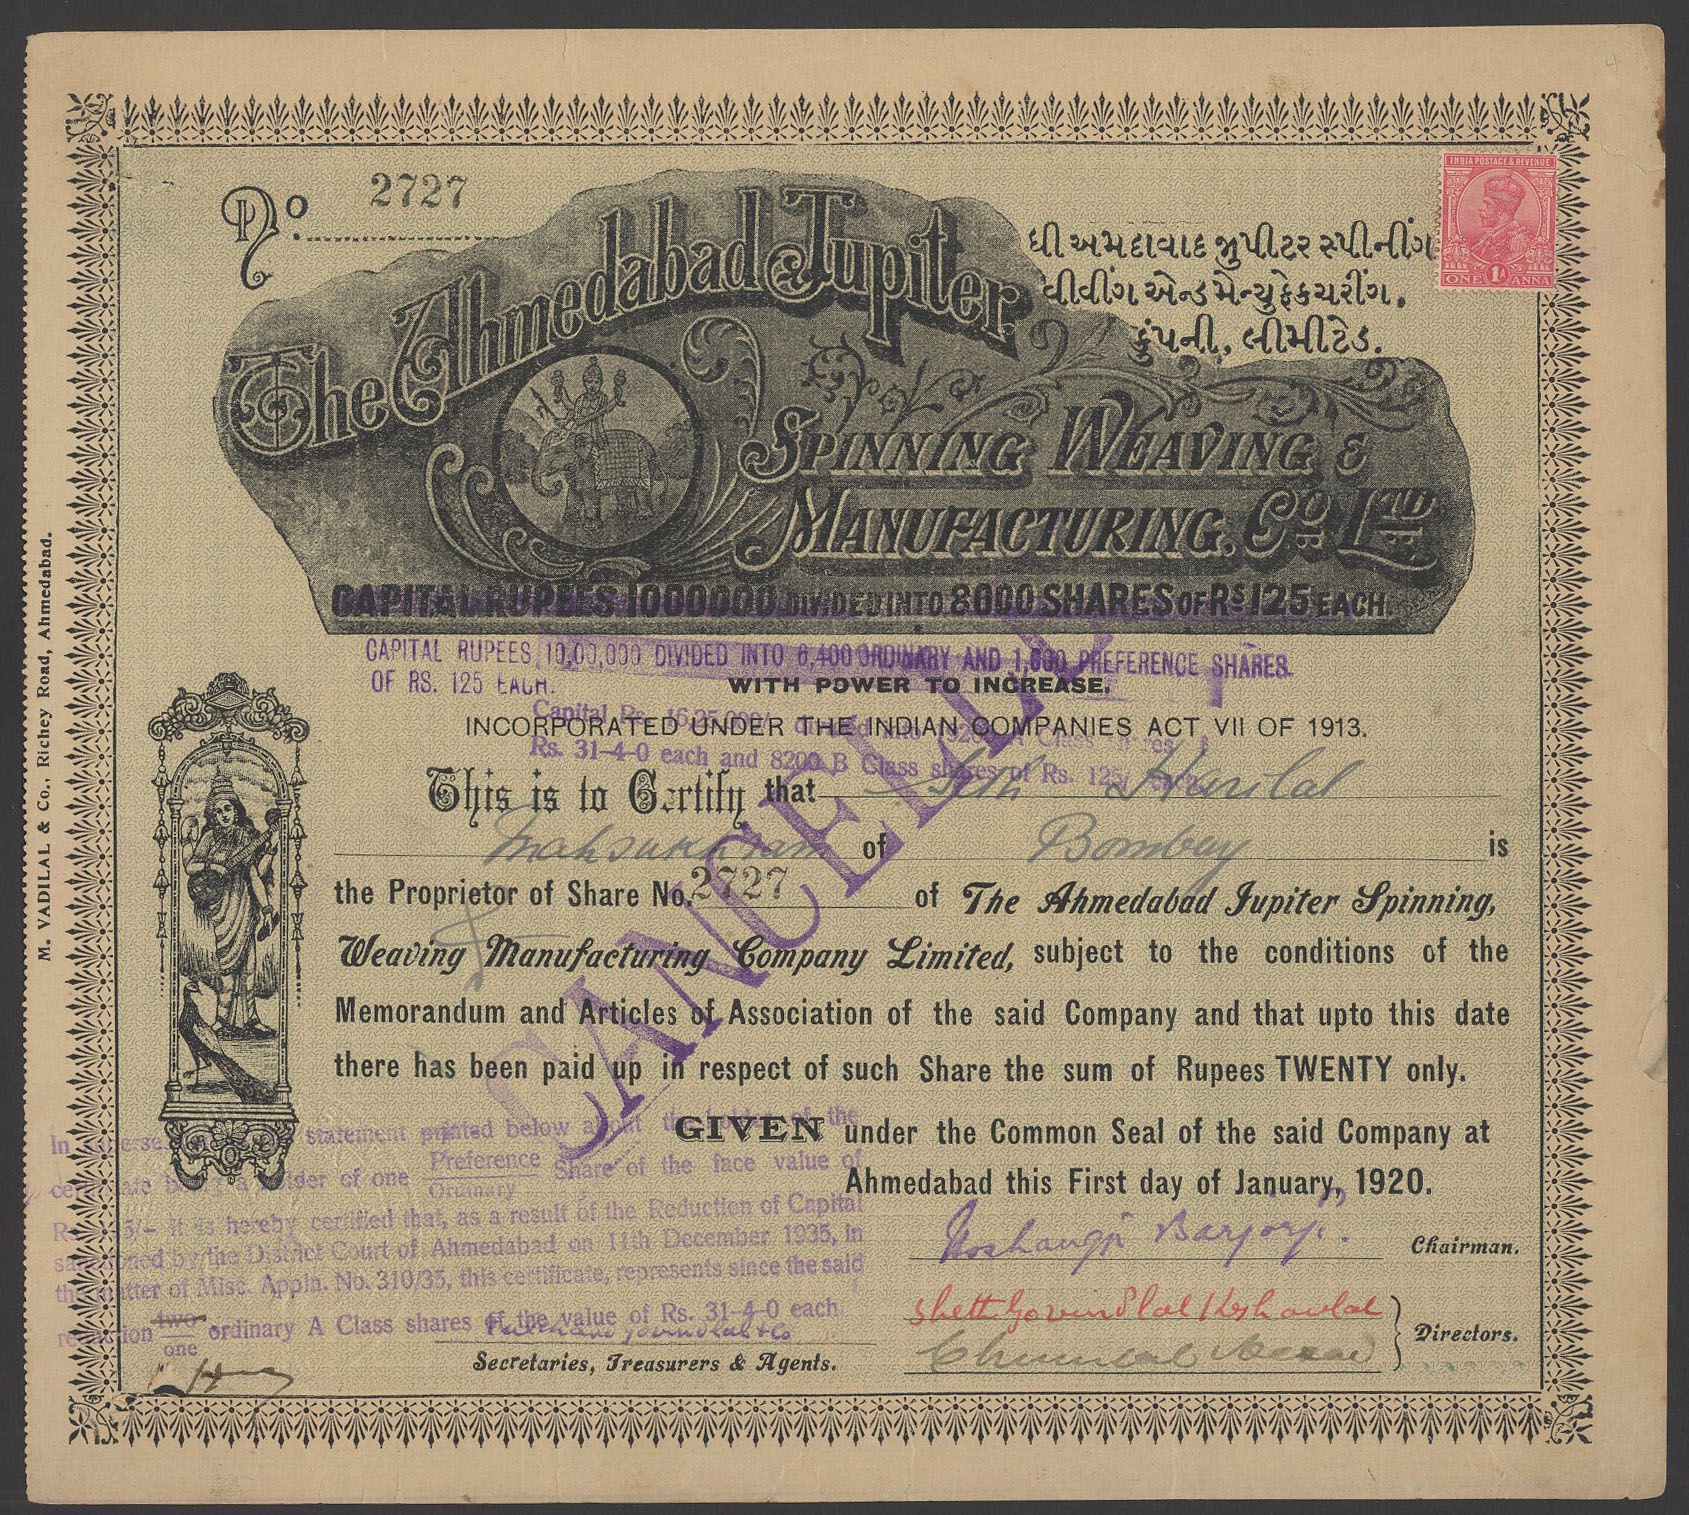 No. 2727
INDIA POSTAGE & REVENUE
ONE 1A ANNA
The Ahmedabad Jupiter
ધી અમદાવાદ જીુપીટર સ્પીનીંગ
વીવીંગ એન્ડ મેન્યુફેકચરીંગ.
કુંપની, લીમીટેડ.
SPINNING WEAVING &
MANUFACTURING, CO LTD
CAPITAL RUPEES 1000000 DIVIDED INTO 8000 SHARES OF RS 125 EACH.
CAPITAL RUPEES 10,00,000 DIVIDED INTO 6,400 ORDINARY AND 1,600 PREFERENCE SHARES.
OF RS. 125 EACH.
WITH POWER TO INCREASE.
Capital Rs. 16,25,000/-
INCORPORATED UNDER THE INDIAN COMPANIES ACT VII OF 1913.
Rs. 31-4-0 each and 8200 B Class shares of Rs. 125/ each
This is to Certify that Seth Harilal
Mahsukhram of Bombay is
the Proprietor of Share No. 2727 of The Ahmedabad Jupiter Spinning,
Weaving & Manufacturing Company Limited, subject to the conditions of the
Memorandum and Articles of Association of the said Company and that upto this date
there has been paid up in respect of such Share the sum of Rupees TWENTY only.
CANCELLED
GIVEN under the Common Seal of the said Company at
Ahmedabad this First day of January, 1920.
In statement printed below about the holder of the
certificate being a holder of one Preference Ordinary Share of the face value of
it is hereby certified that, as a result of the Reduction of Capital
sanctioned by the District Court of Ahmedabad on 11th December 1935, in
the matter of Misc. Appln. No. 310/35, this certificate, represents since the said
two
one
ordinary A Class shares of the value of Rs. 31-4-0 each
Noshangji Barjorji
Chairman.
Shett Govindlal Keshavlal
Directors.
Secretaries, Treasurers & Agents.
M. VADILAL & Co., Richey Road, Ahmedabad.